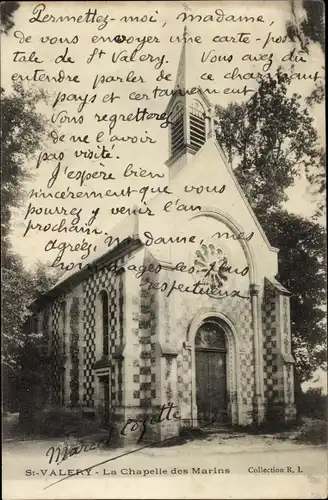 Permettez-moi, Madame,
de vous envoyer une carte-pos
tale de St Valery. Vous avez dû
entendre parler de ce charmant
pays et certainement
vous regrettez
de ne l'avoir
pas visité.
J'espère bien
sincèrement que vous
pourrez y venir l'an
prochain.
Agréez, Madame, mes
hommages les plus
respectueux
Marcel Cozette
St-VALERY - La Chapelle des Marins
Collection R. L.